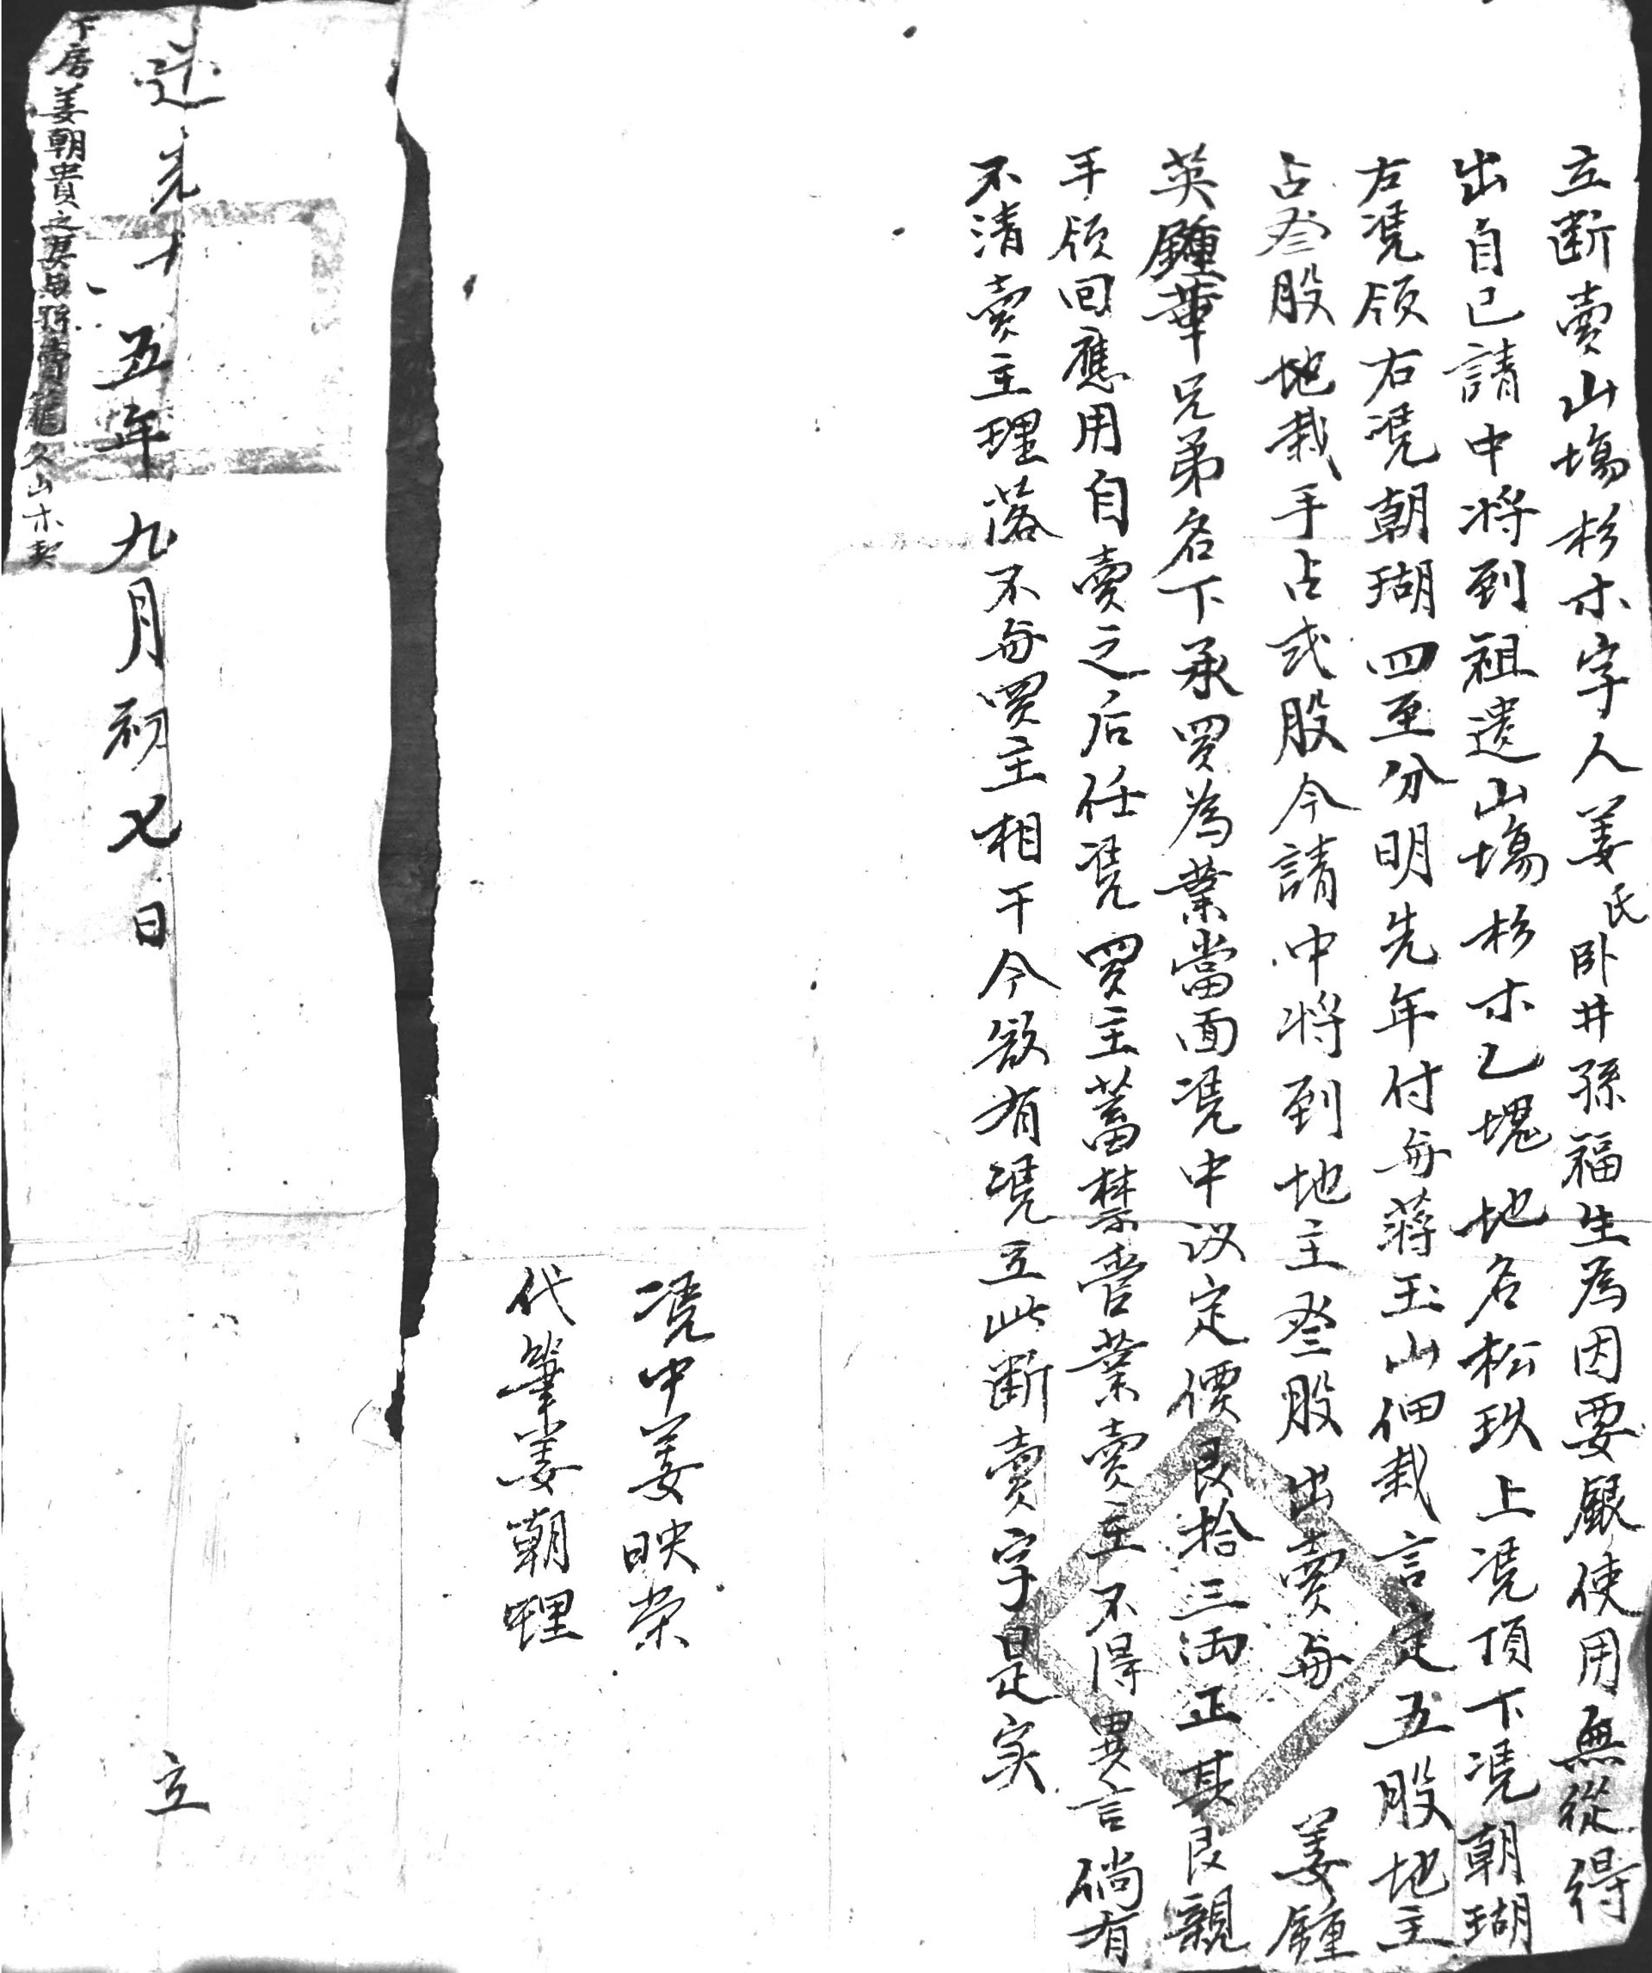 立断賣山塲杉木字人姜氏卧井孫福生為因要銀使用無從得
出自己請中将到祖遗山塲杉木乙塊地名松玖上凴頂下凴朝瑚
左凴領右凴朝瑚四至分明先年付與蔣玉山佃栽言定五股地主
占叁股地栽手占弍股今請中将到地主叁股出賣與姜鍾
英鍾華兄弟名下承買為業當面凴中议定價艮拾三両正其艮親
手领回應用自賣之后任凴買主蓄禁管業賣主不得異言倘有
不清賣主理落不與買主相干今欲有凴立此断賣字是实
凴中姜映荣
代筆姜朝理
道光十五年九月初七日立
下房姜朝貴之妻 賣 山木契